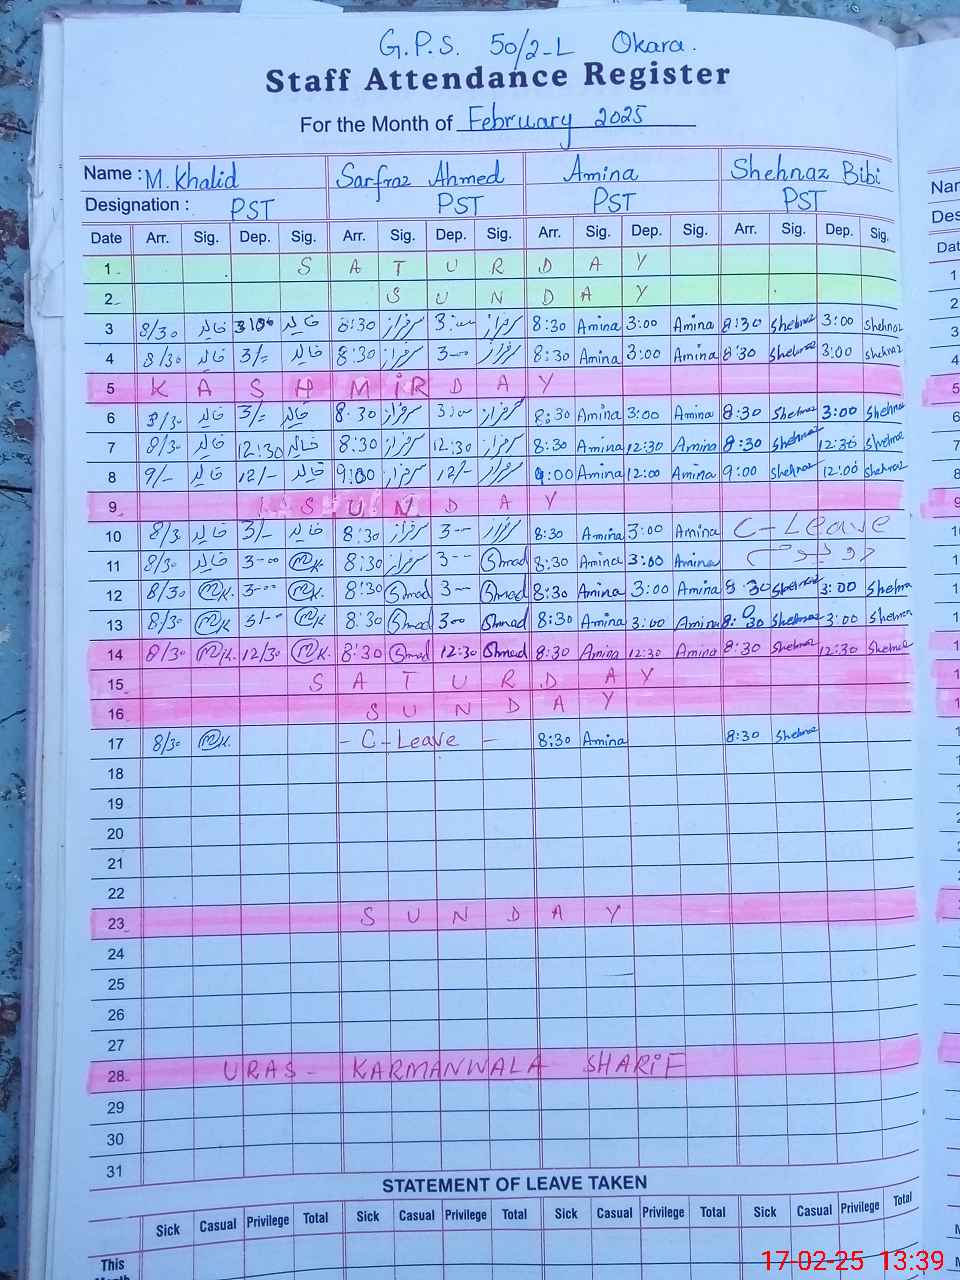 G.P.S. 50/2-L Okara.
Staff Attendance Register
For the Month of February 2025
Name : M. Khalid Sarfraz Ahmed Amina Shehnaz Bibi
Designation : PST PST PST PST
Date Arr. Sig. Dep. Sig. Arr. Sig. Dep. Sig. Arr. Sig. Dep. Sig. Arr. Sig. Dep. Sig.
1 S A T U R D A Y
2 S U N D A Y
3 8/30 خالد خالد 8:30 سرفراز سرفراز 8:30 Amina 3:00 Amina 8:30 Shehnaz 3:00 Shehnaz
4 8/30 خالد 3/= خالد 8:30 سرفراز 3-- سرفراز 8:30 Amina 3:00 Amina 8:30 Shehnaz 3:00 Shehnaz
5 K A S H M i R D A Y
6 8/30 خالد 3/= خالد 8:30 سرفراز سرفراز 8:30 Amina 3:00 Amina 8:30 Shehnaz 3:00 Shehna
7 8/30 خالد 12:30 خالد 8:30 سرفراز 12:30 سرفراز 8:30 Amina 12:30 Amina 8:30 Shehnaz 12:30 Shehna
8 9/- خالد 12/- خالد 9:00 سرفراز 12/- سرفراز 9:00 Amina 12:00 Amina 9:00 Shehnaz 12:00 Shehnaz
9 S U N D A Y
10 8/3 خالد 3/- خالد 8:30 سرفراز 3-- سرفراز 8:30 Amina 3:00 Amina C-Leave
11 8/3 خالد 3-00 MK. 8:30 سرفراز 3-- 8:30 Amina 3:00 Amina
12 8/30 MK. 3-00 MK. 8:30 3-- 8:30 Amina 3:00 Amina 8:30 Shehnaz 3:00 Shehna
13 8/30 MK MK. 8:30 300 8:30 Amina 3:00 Amina 8:30 Shehnaz 3:00 Shehna
14 8/30 MK. 12/30 MK. 8:30 12:30 8:30 Amina 12:30 Amina 8:30 Shehnaz 12:30 Shehna
15 S A T U R D A Y
16 S U N D A Y
17 8/30 MK. - C-Leave - 8:30 Amina 8:30 Shehnaz
18
19
20
21
22
23 S U N D A Y
24
25
26
27
28 URAS - KARMANWALA SHARiF
29
30
31
STATEMENT OF LEAVE TAKEN
Sick Casual Privilege Total Sick Casual Privilege Total Sick Casual Privilege Total Sick Casual Privilege Total
This
17-02-25 13:39